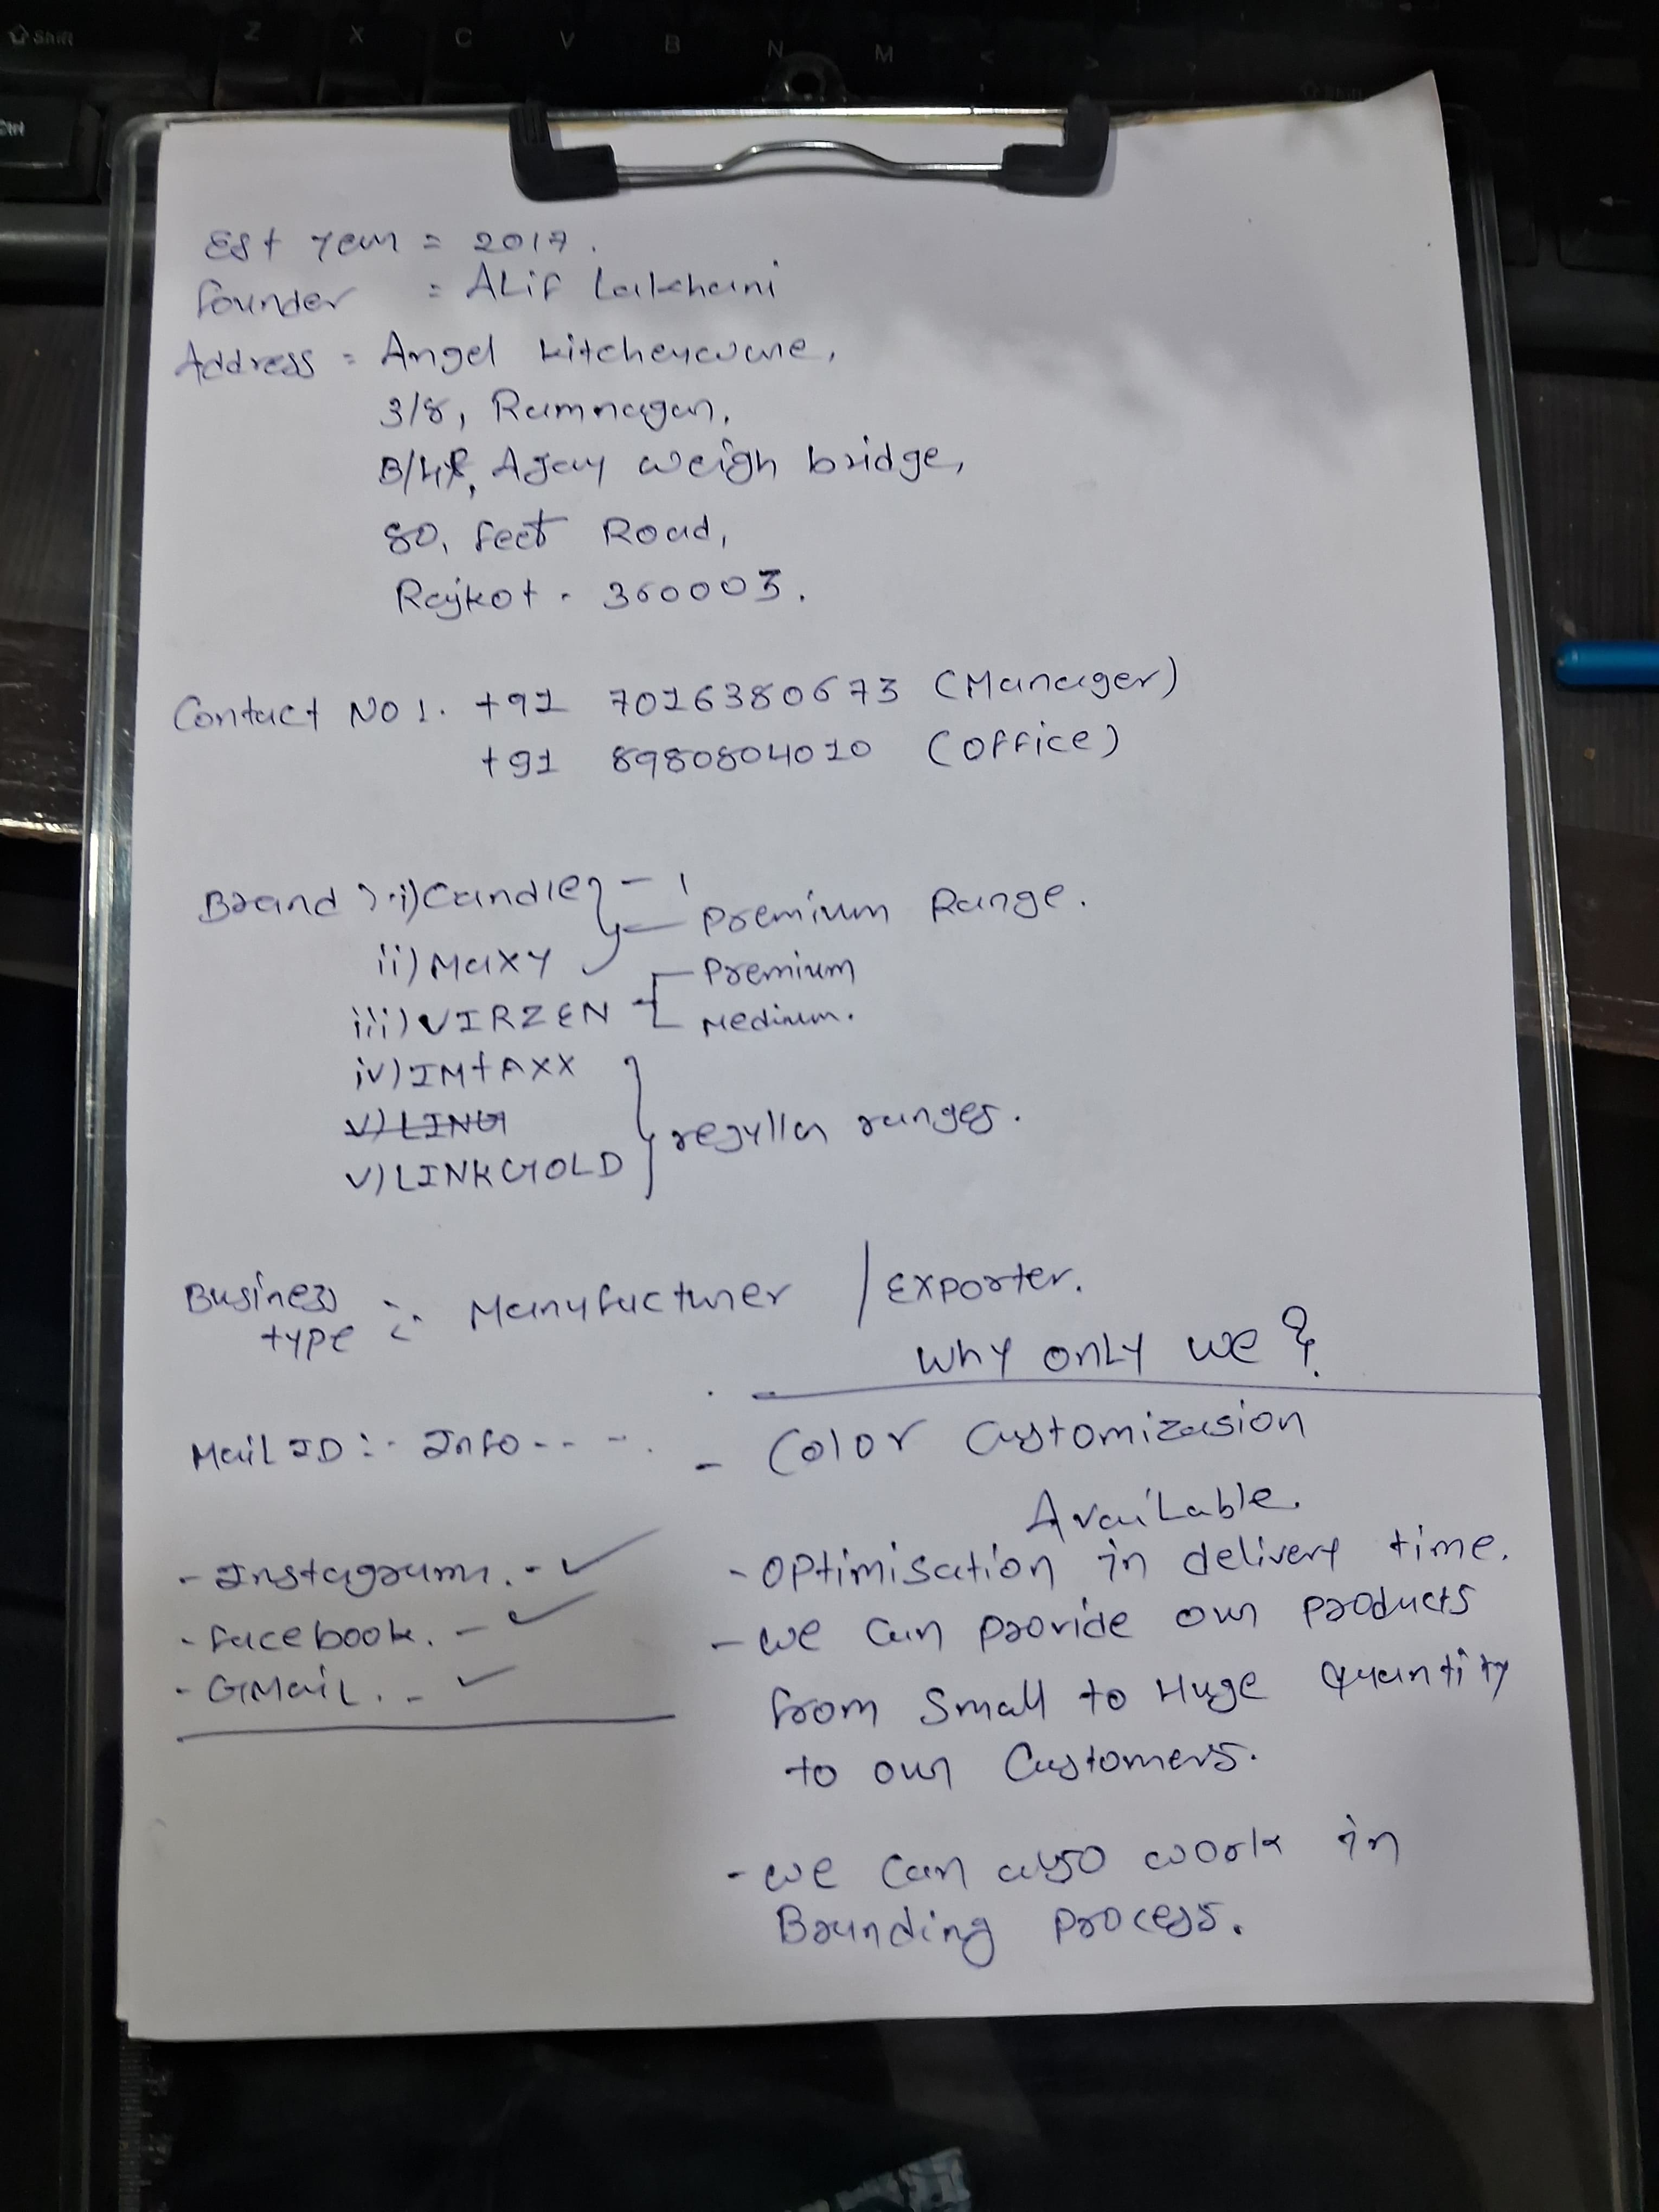 Est Year = 2017.
founder = ALif Lakhani
Address = Angel kitchenware,
3/8, Ramnagar,
B/H, Ajay weigh bridge,
80, feet Road,
Rajkot - 360003.
Contact NO 1. +91 7016380673 (Manager)
+91 8980804010 (office)
Brand :- i) Candle - Premium Range.
ii) Maxy
iii) VIRZEN - Premium
Medium.
iv) IMTAXX
v) LING
v) LINKGOLD regullar ranges.
Business type :- Manufacturer / Exporter.
Why only we ?
Mail ID :- Info-- --.
- Color Customizasion
Available.
- Instagram. - ✓
- Optimisation in delivery time.
- facebook. - ✓
- we can provide our products
- GMail. - ✓
from small to Huge quantity
to our Customers.
- we can also work in
Branding process.
Shift
Z X C V B N M < >
Shift
Ctrl